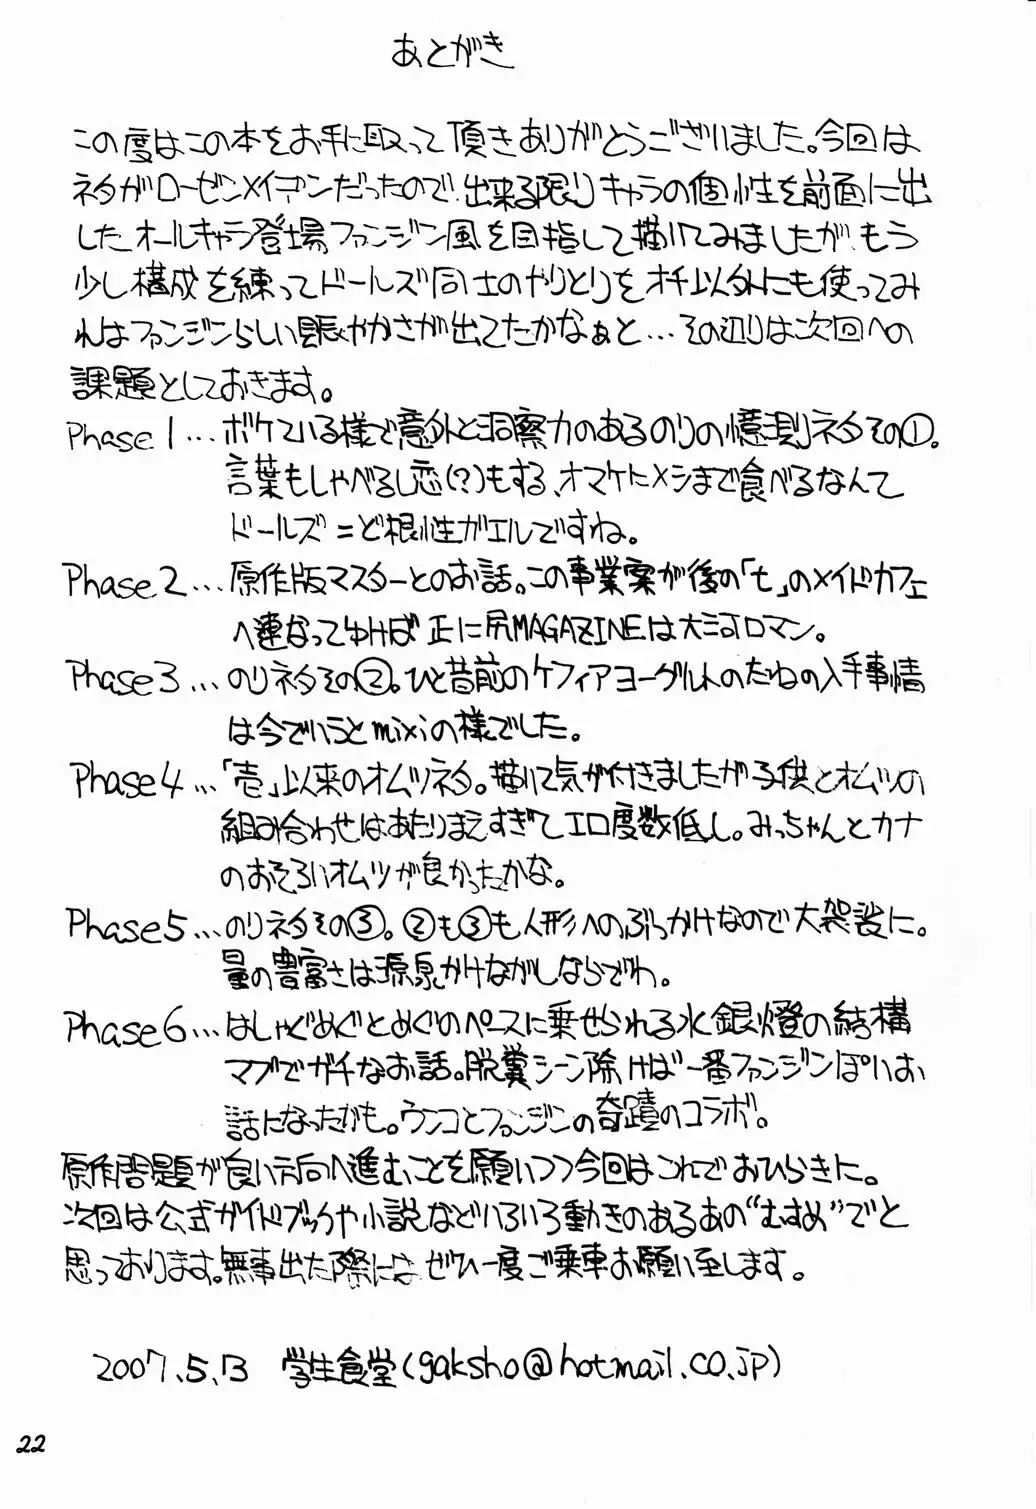 あとがき
この度はこの本をお手に取って頂きありがとうございました。今回は
ネタがローゼンメイデンだったので、出来る限りキャラの個性を前面に出
したオールキャラ登場ファンジン風を目指して描いてみましたが、もう
少し構成を練ってドールズ同士のやりとりをオチ以外にも使ってみ
ればファンジンらしい賑やかさが出てたかなぁと…その辺りは次回への
課題としておきます。
Phase1…ボケている様で意外と洞察力のあるのりの憶測ネタその①。
言葉もしゃべるし恋(?)もする、オマケにメシまで食べるなんて
ドールズ=ど根性ガエルですね。
Phase2…原作版マスターとのお話。この事業案が後の「t」のメイドカフェ
へ連なってゆけば正に尻MAGAZINEは大河ロマン。
Phase3…のりネタその②。ひと昔前のケフィアヨーグルトのたねの入手事情
は今でいうとmixiの様でした。
Phase4…「壱」以来のオムツネタ。描いて気が付きましたが子供とオムツの
組み合わせはあたりまえすぎてエロ度数低し。みっちゃんとカナ
のおそろいオムツが良かったかな。
Phase5…のりネタその③。②も③も人形へのぶっかけなので大袈裟に。
量の豊富さは源泉かけながしならでわ。
Phase6…はしゃぐめぐとめぐのペースに乗せられる水銀燈の結構
マブでガチなお話。脱糞シーン除けば一番ファンジンぽいお
話になったかも。ウンコとファンジンの奇蹟のコラボ。
原作問題が良い方向へ進むことを願いつつ今回はこれでおひらきに。
次回は公式ガイドブックや小説などいろいろ動きのあるあの“むすめ”でと
思っております。無事出た際にはぜひ一度ご乗車お願い至します。
2007.5.13 学生食堂(gaksho@hotmail.co.jp)
22